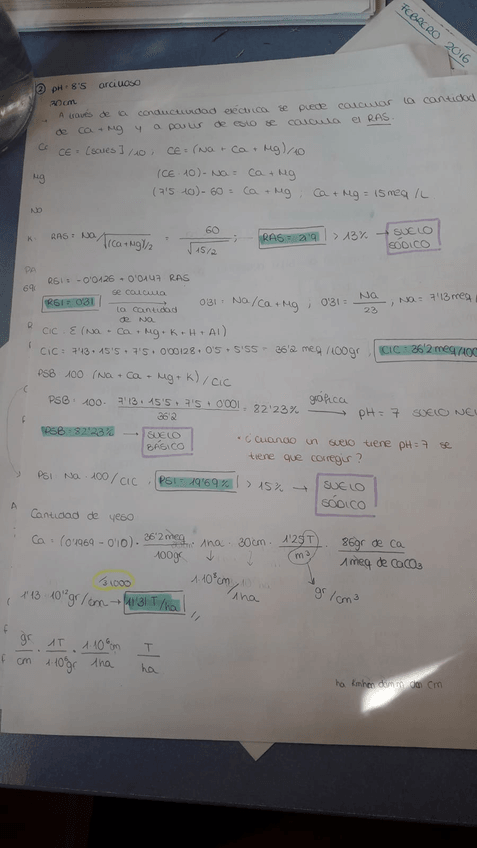 FEBRERO 2016
② pH = 8'5 arcilloso
30cm
A través de la conductividad eléctrica se puede calcular la cantidad
de Ca + Mg y a partir de esto se calcula el RAS.
Ca CE = [sales]/10 ; CE = (Na + Ca + Mg)/10
Mg (CE·10) - Na = Ca + Mg
(7'5·10) - 60 = Ca + Mg ; Ca + Mg = 15 meq/L
Na
K RAS = Na/√(Ca+Mg)/2 = 60/√15/2 ; RAS = 21'9 > 13% → SUELO SÓDICO
RSI = -0'0126 + 0'0147 RAS
RSI = 0'31 se calcula la cantidad de Na → 0'31 = Na/Ca+Mg ; 0'31 = Na/23 , Na = 7'13 meq/
CIC = Σ (Na + Ca + Mg + K + H + Al)
CIC = 7'13 + 15'5 + 7'5 + 0'00128 + 0'5 + 5'55 = 36'2 meq/100gr , CIC = 36'2 meq/100
PSB 100 (Na + Ca + Mg + K)/CIC
PSB = 100 · 7'13 + 15'5 + 7'5 + 0'001/36'2 = 82'23% gráfica → pH = 7 SUELO NEU
PSB = 82'23% → SUELO BÁSICO
• ¿ cuando un suelo tiene pH = 7 se
tiene que corregir ?
PSI Na·100/CIC , PSI = 19'69% > 15% → SUELO SÓDICO
Cantidad de yeso
Ca = (0'1969 - 0'10) · 36'2 meq/100gr · 1ha · 30cm · 1'25 T/m³ · 86gr de ca/1 meq de CaCO3
1·10⁸cm/1ha
gr/cm³
÷1000
1'13·10¹²gr/cm → 11'31 T/ha
gr/cm · 1T/1·10⁶gr · 1·10⁸cm/1ha T/ha
ha km hm dam m dm cm